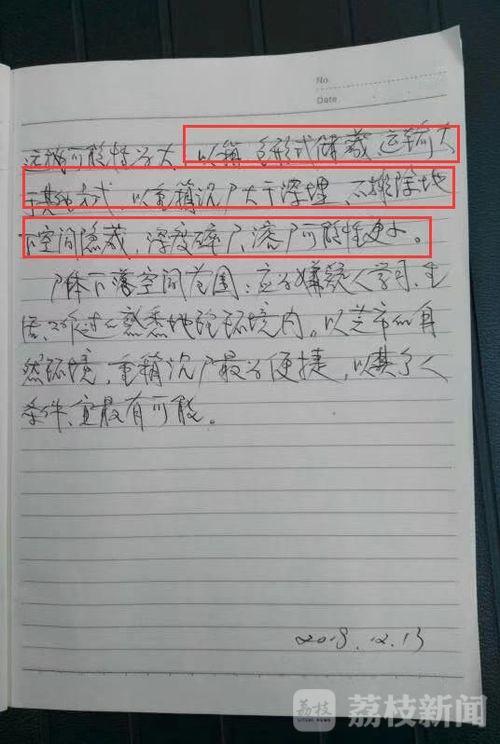 No.
Date
远抛可能性不大、以箱包形式储藏运输大
于其他方式，以重箱沉尸大于深埋，不排除地
下空间隐藏，深度碎尸、溶尸可能性更小。
尸体下落空间范围：应为嫌疑人学习、生
活、工作过之熟悉地理环境内。以芝市的自
然环境，重箱沉尸最为便捷，以其个人
条件，宜最有可能。
2019.12.13
荔枝 荔枝新闻
LITCHI NEWS